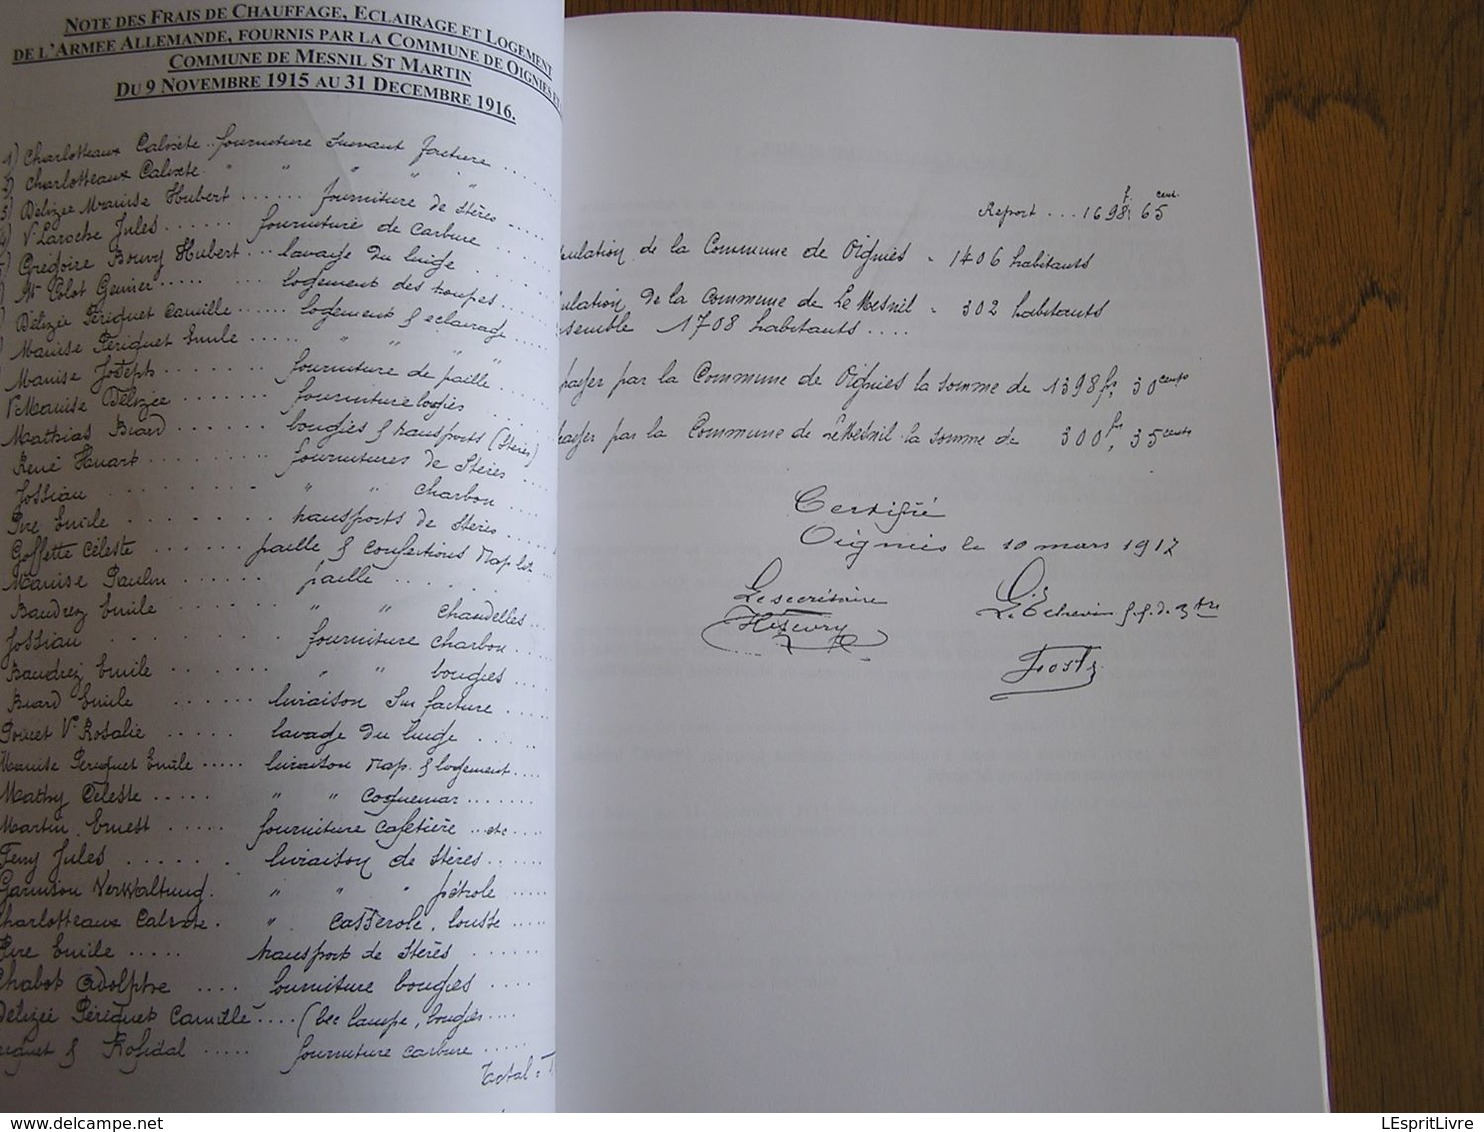 NOTE DES FRAIS DE CHAUFFAGE, ECLAIRAGE ET LOGEMENT
DE L'ARMEE ALLEMANDE, FOURNIS PAR LA COMMUNE DE OIGNIES ET
COMMUNE DE MESNIL ST MARTIN
DU 9 NOVEMBRE 1915 AU 31 DECEMBRE 1916.
1) Charlotteaux Calixte .. fourniture suivant facture ......
2) Charlotteaux Calixte " " " "
3) Delizée Manise Hubert ...... fourniture de stères .....
4) V. Laroche Jules ...... fourniture de carbure ...
Grégoire Bouvy Hubert ... lavage du linge ...
Colot Gernier ..... logement des troupes .....
Delizée Périquet Camille ...... logement & eclairage .....
Manise Périquet Emile ..... " " " "
Manise Joseph ........ fourniture de paille ...
Ve Manise Delizée ....... fourniture logies ...
Mathias Biard ....... bougies & transports (stères)
René Huart ......... fournitures de stères ....
Jossiau ......... " " charbon ....
Pire Emile ........ transports de stères .....
Goffette Céleste ....... paille & confections nap lit ...
Manise Paulin ...... paille .....
Baudrez Emile ...... " " chandelles ...
Jossiau ......... fourniture charbon ....
Baudrez Emile ...... " " bougies ....
Biard Emile ....... livraison sur facture .....
Poncet Ve Rosalie ..... lavage du linge ....
Manise Périquet Emile ..... livraison nap. & logement ....
Mathy Céleste ..... " " Coquemar .......
Martin Ernest ..... fourniture cafetière .. etc ...
Ferry Jules ...... livraison de stères ......
Garnison Verwaltung. " " " pétrole .....
Charlotteaux Calixte . " . casserole, louste .....
Pire Emile ..... transport de stères ......
Chabot Adolphe .... fourniture bougies ....
Delizée Périquet Camille .... (bec lampe, bougies ....
& Rofidal ..... fourniture carbure .....
Total =
Report ... 1698 f. 65 cent.
ulation de la Commune de Oignies = 1406 habitants
ulation de la Commune de Le Mesnil = 302 habitants
semble 1708 habitants ....
payer par la Commune de Oignies la somme de 1398 fs 30 cents
payer par la Commune de Le Mesnil la somme de 300 frs, 35 cents
Certifié
Oignies le 10 mars 1917
Le secrétaire
L'Echevin f.f. d. Btre